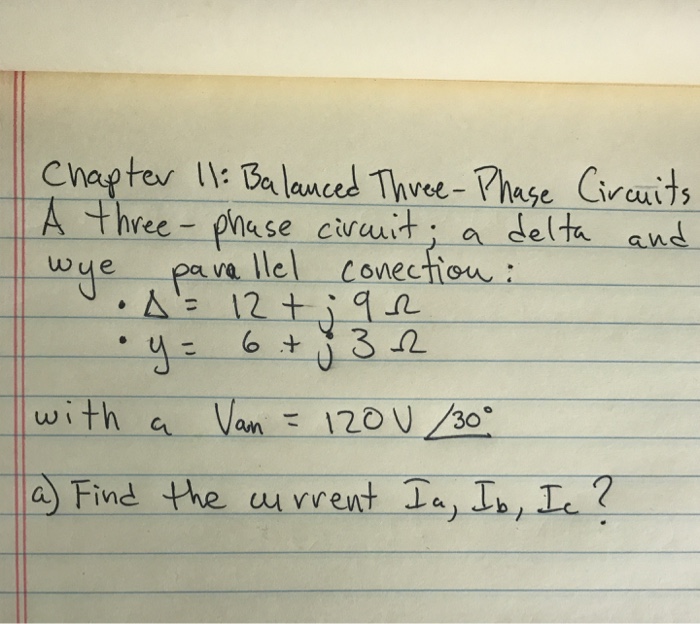 Chapter 11: Balanced Three-Phase Circuits
A three-phase circuit; a delta and
wye parallel conection:
• Δ = 12 + j 9 Ω
• y = 6 + j 3 Ω
with a Van = 120V ∠30°
a) Find the current Ia, Ib, Ic?